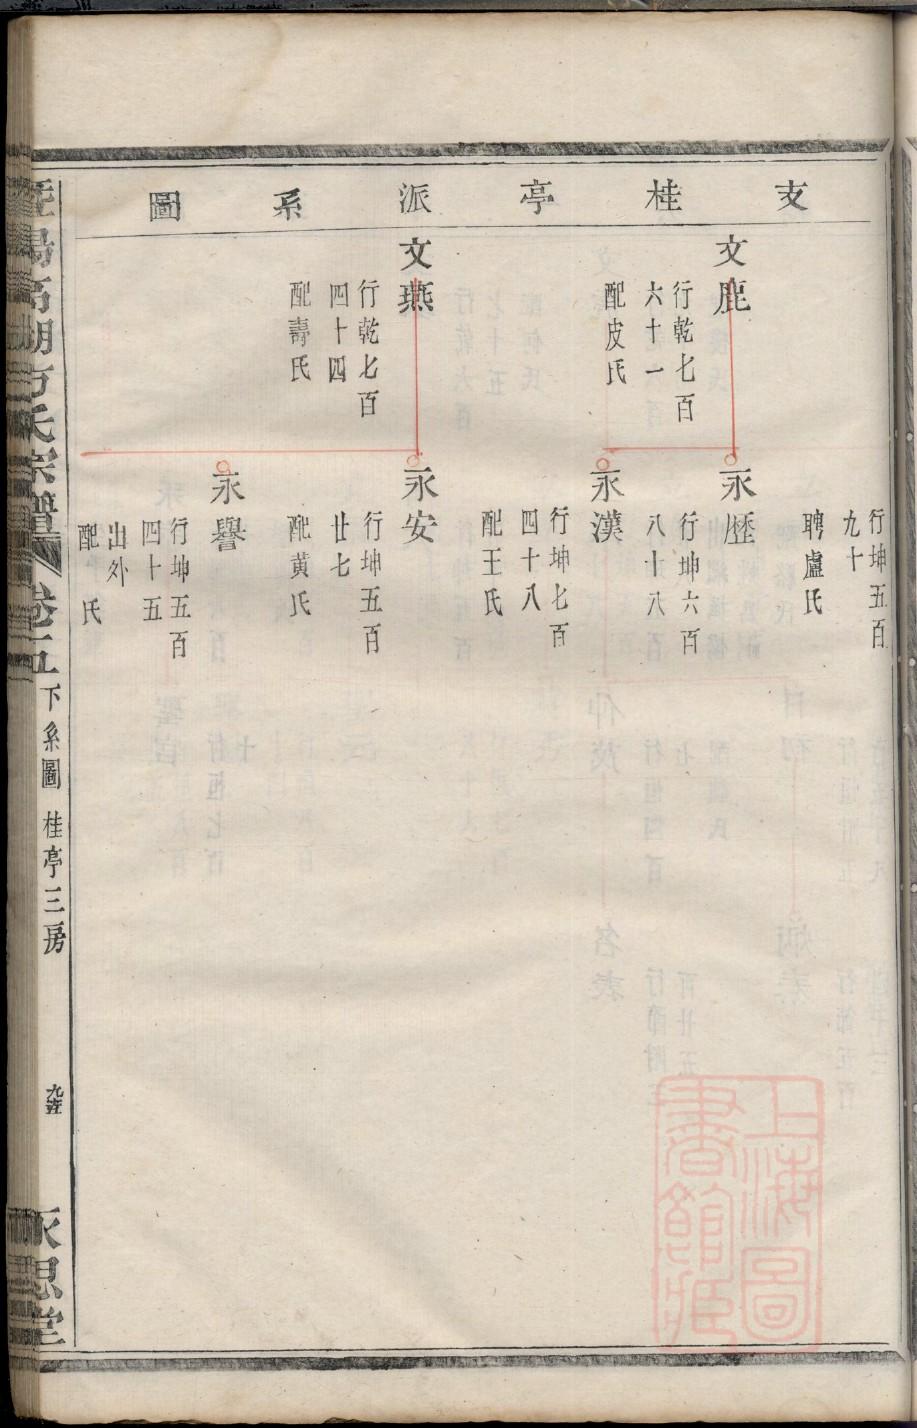 支桂亭派系圖
文鹿
行乾七百
六十一
配皮氏
文燕
行乾七百
四十四
配壽氏
行坤五百
九十
聘盧氏
永歷
行坤六百
八十八
永漢
行坤七百
四十八
配王氏
永安
行坤五百
廿七
配黄氏
永譽
行坤五百
四十五
出外
配 氏
暨陽高湖方氏宗譜
卷十五
下系圖 桂亭三房
永思堂
上海圖
書館藏